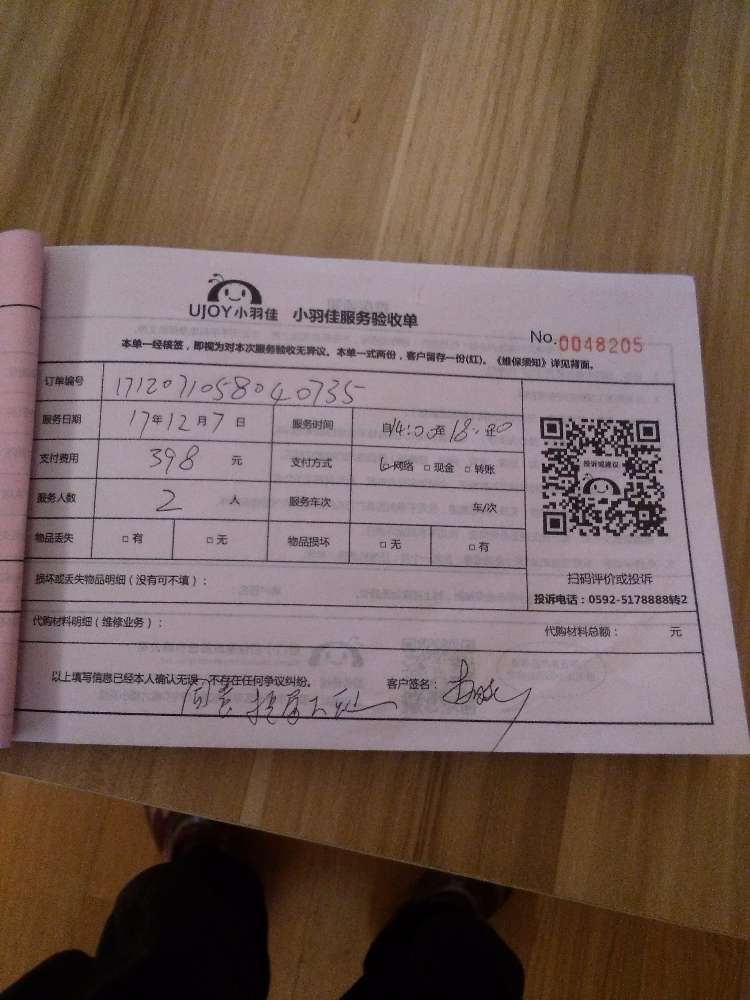 UJOY小羽佳 小羽佳服务验收单
No.0048205
本单一经核签，即视为对本次服务验收无异议。本单一式两份，客户留存一份(红)。《维保须知》详见背面。
订单编号 1712071058040735
服务日期 17年12月7日 服务时间 自14:00至18:00
支付费用 398 元 支付方式 □网络 □现金 □转账
服务人数 2 人 服务车次 车/次
物品丢失 □有 □无 物品损坏 □无 □有
投诉或建议
扫码评价或投诉
损坏或丢失物品明细（没有可不填）：
投诉电话：0592-5178888转2
代购材料明细（维修业务）： 代购材料总额： 元
以上填写信息已经本人确认无误，不存在任何争议纠纷。 客户签名：